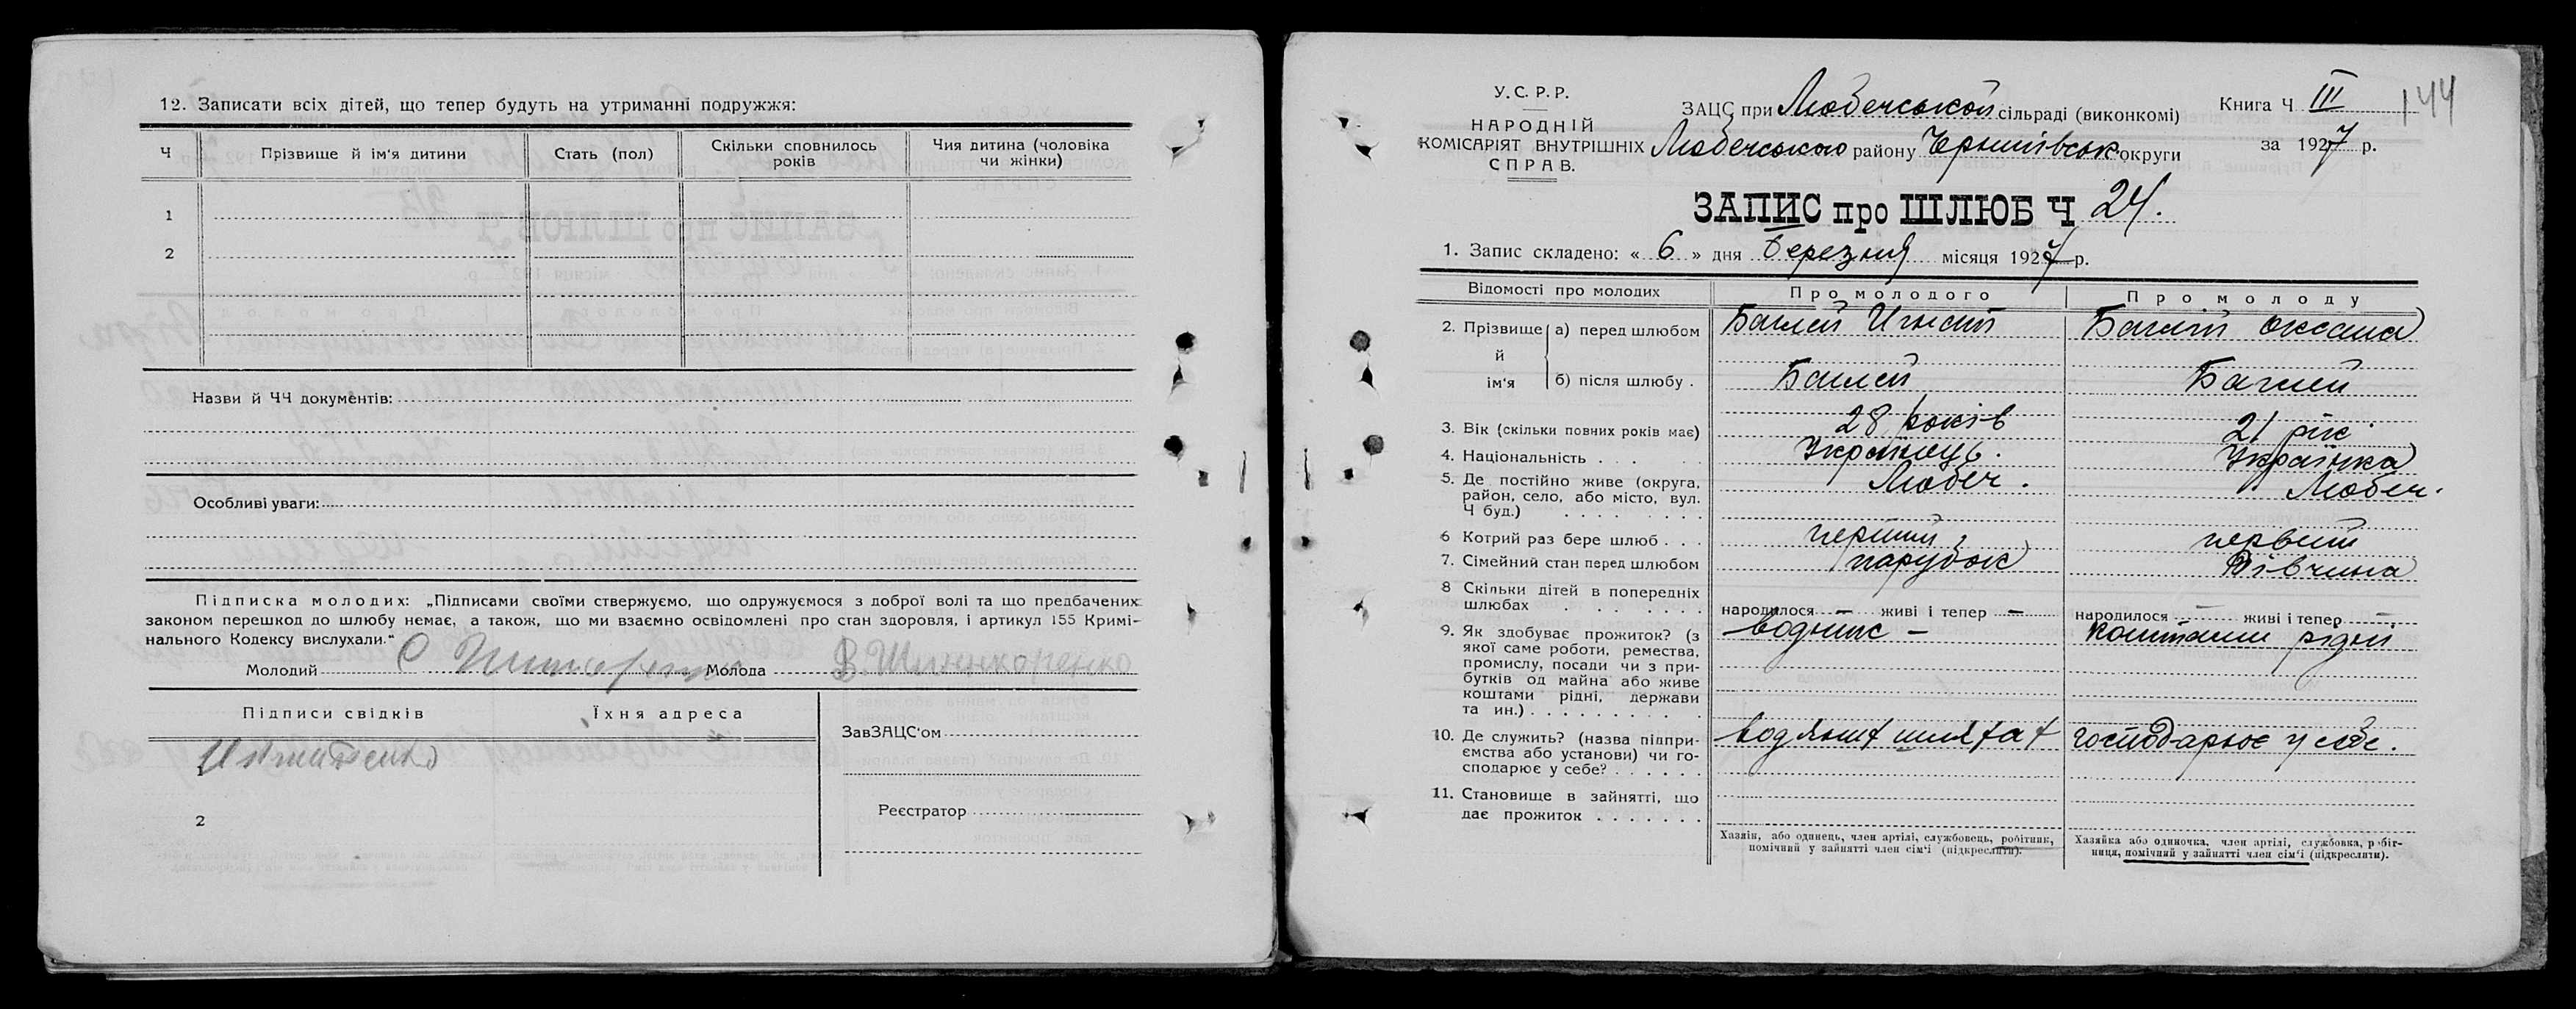 12. Записати всіх дітей, що тепер будуть на утриманні подружжя:
Ч
Прізвище й ім'я дитини
Стать (пол)
Скільки сповнилось років
Чия дитина (чоловіка чи жінки)
1
2
Назви й ЧЧ документів:
Особливі уваги:
Підписка молодих: „Підписами своїми стверджуємо, що одружуємося з доброї волі та що предбачених
законом перешкод до шлюбу немає, а також, що ми взаємно освідомлені про стан здоровля, і артикул 155 Кримі-
нального Кодексу вислухали."
Молодий
Молода В. Шинкоренко
Підписи свідків
Їхня адреса
1
2
ЗавЗАЦС'ом
Реєстратор
У.С.Р.Р.
НАРОДНІЙ
КОМІСАРІЯТ ВНУТРІШНІХ
СПРАВ.
ЗАЦС при Любечськой сільраді (виконкомі)
Любечського району Чернигівськ. округи
Книга Ч III
144
за 1927 р.
ЗАПИС про ШЛЮБ Ч 24.
1. Запис складено: « 6 » дня Березня місяця 1927 р.
Відомості про молодих
Про молодого
Про молоду
2. Прізвище й ім'я а) перед шлюбом Баглей Игнат Баглій Оксана
б) після шлюбу . Баглей Баглей
3. Вік (скільки повних років має) 28 років 21 рік
4. Національність . . . Українець. Українка
5. Де постійно живе (округа, Любеч. Любеч.
район, село, або місто, вул.
Ч буд.) . . . .
6 Котрий раз бере шлюб . . . перший первий
7. Сімейний стан перед шлюбом парубок дівчина
8 Скільки дітей в попередніх
шлюбах . . . . народилося — живі і тепер — народилося — живі і тепер —
9. Як здобуває прожиток? (з водник - коштами рідні
якої саме роботи, ремества,
промислу, посади чи з при-
бутків од майна або живе
коштами рідні, держави
та ин.) . . . . . . . .
10. Де служить? (назва підпри- господарює у себе.
ємства або установи) чи го-
сподарює у себе? . . . . . .
11. Становище в зайнятті, що
дає прожиток . . . . . . .
Хазяїн, або одинець, член артілі, службовець, робітник,
помічний у зайнятті член сім'ї (підкреслити).
Хазяйка або одиночка, член артілі, службовка, робіт-
ниця, помічний у зайнятті член сім'ї (підкреслити).